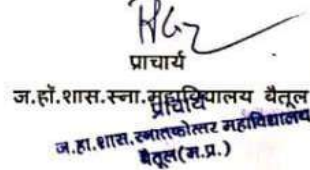 प्राचार्य
ज.हॉ.शास.स्ना.महाविद्यालय बैतूल
प्राचार्य
ज.हा.शास.स्नातकोत्तर महाविद्यालय
बैतूल(म.प्र.)